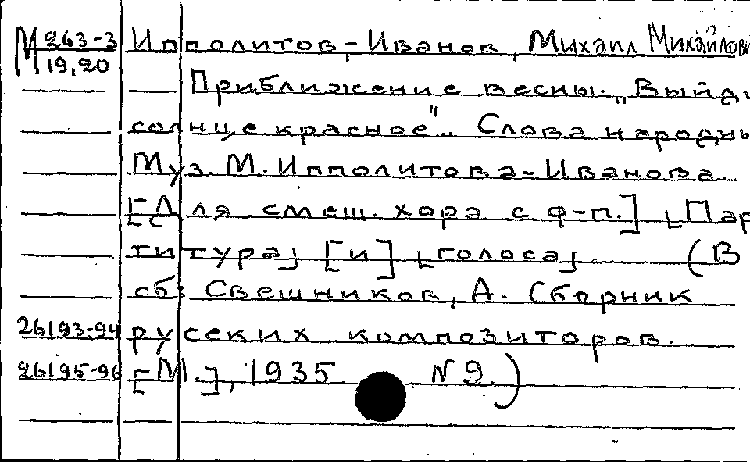 М 263-3 Ипполитов-Иванов, Михаил Михайлови
19,20
Приближение весны. „Выйди
солнце красное". Слова народны
Муз. М. Ипполитова-Иванова.
[Для смеш. хора с ф-п.] [Пар
титура] [и] [голоса] (В
сб: Свешников, А. Сборник
26193-94 русских композиторов.
26195-96 [М.], 1935 N 9.)